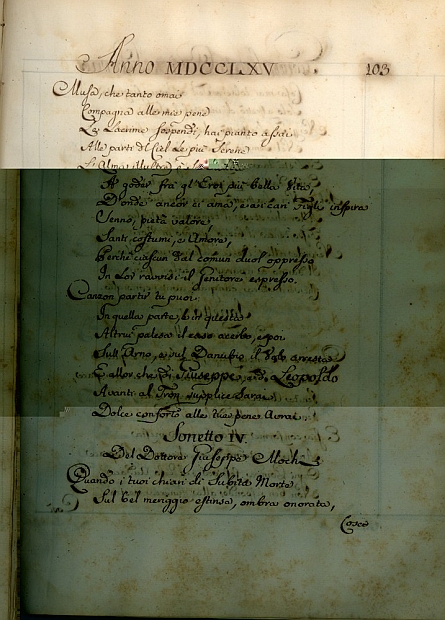 Anno MDCCLXV 103
Musa, che tanto omai
Compagna alle mie pene
Le Lacrime sospendi, hai pianto assai
Alle parti del Ciel le più serene
A goder fra gl'Eroi più bella Vita,
D'onde ancor ci ama, e ai cari Figli inspira
Senno, pietà valore
Santi costumi, e Amore,
Perchè ciascun del comun duol oppresso
In Lor ravvisi il Genitore espresso.
Canzon partir tu puoi
In quella parte, e in questa
Altrui palesa il caso acerbo, e poi
Sull'Arno, e sul Danubio il volo arresta
E allor che di Giuseppe, e di Leopoldo
Avanti al Tron supplice sarai
Dolce conforto alle tue pene Avrai.
Sonetto IV.
Del Dottore Giuseppe
Quando i tuoi chiari dì Subita Morte
Sul bel meriggio estinse, ombra onorata,
Cosce